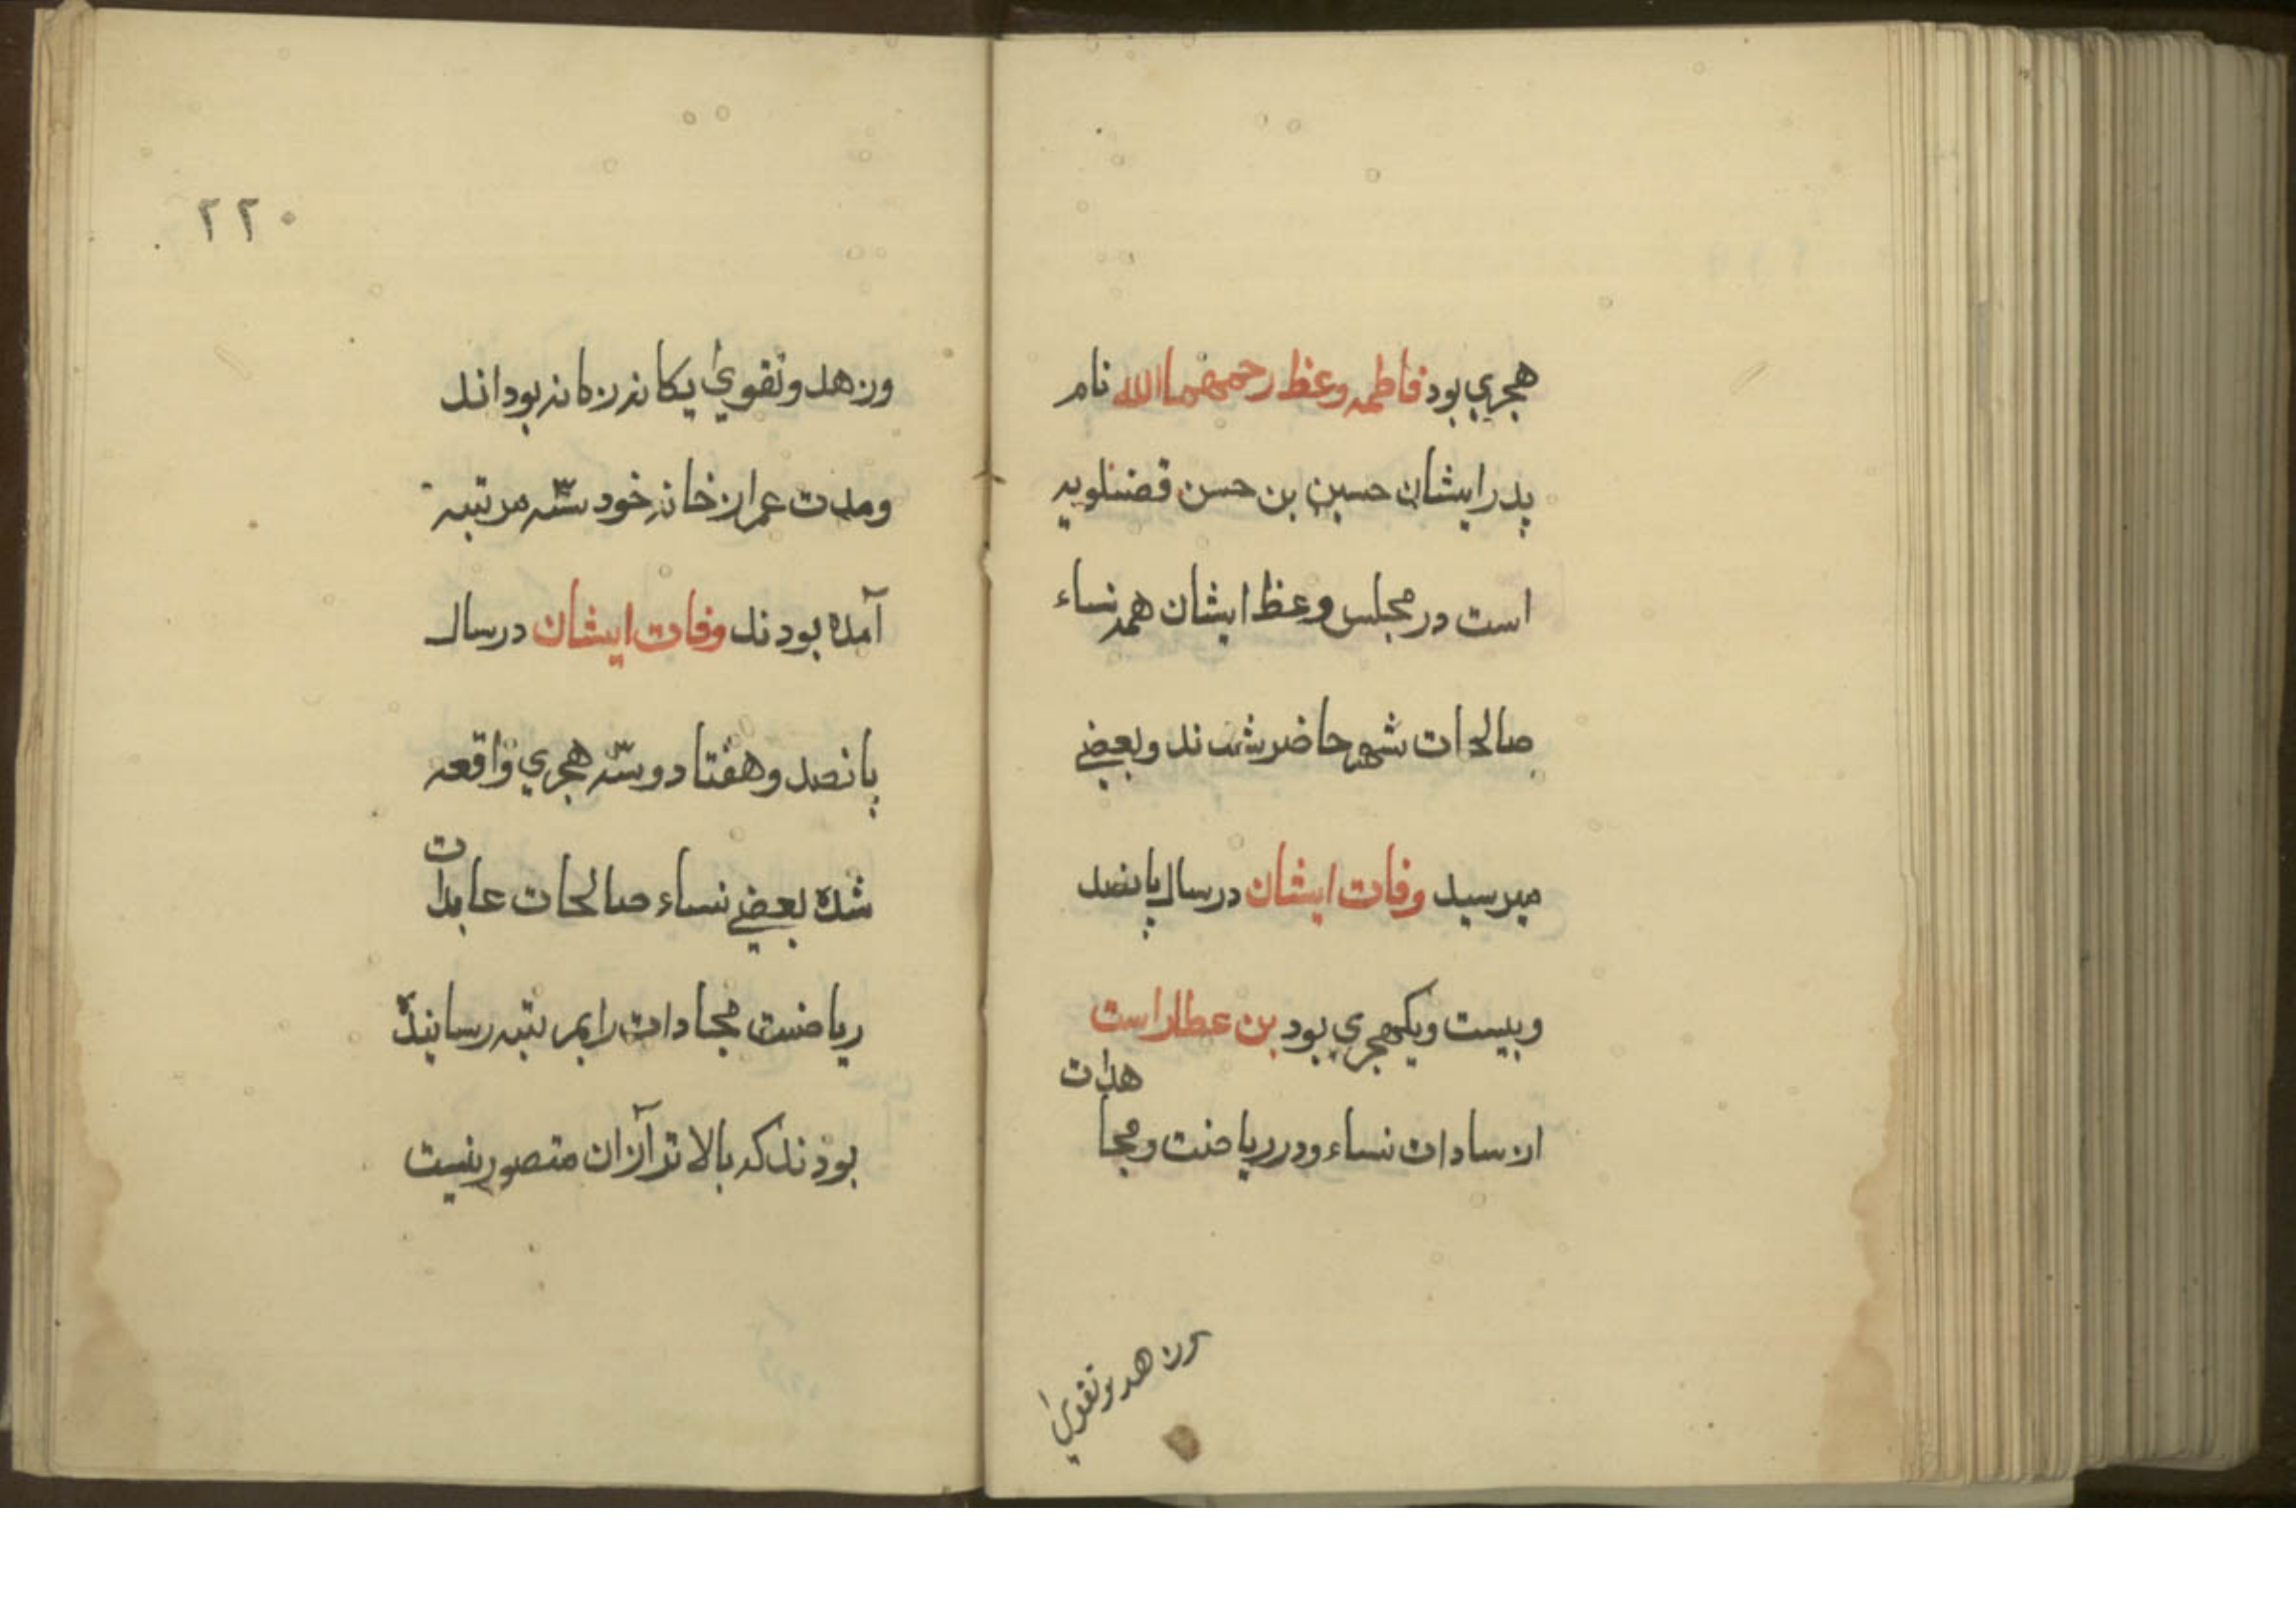 هجري بود فاطمه وعظ رحمهما الله نام
پدر ايشان حسين بن حسن فضلويه
است در مجلس وعظ ايشان همه نساء
صالحات شهر حاضر شدند وبعضي
ميرسيد وفات ايشان در سال پانصد
وبيست ويكهجري بود بن عطار است
از سادات نساء ودر رياضت ومجا
هدات
وزهد وتقويٰ
٢٢٠
وزهد وتقويٰ يكانه زمانه بودند
ومدت عمر از خانه خود سه مرتبه
آمده بودند وفات ايشان در سال
پانصد وهفتاد وسه هجري واقعه
شده بعضي نساء صالحات عابدات
رياضت مجادات را بمرتبه رسانيده
بودند كه بالاتر آزان متصور نيست